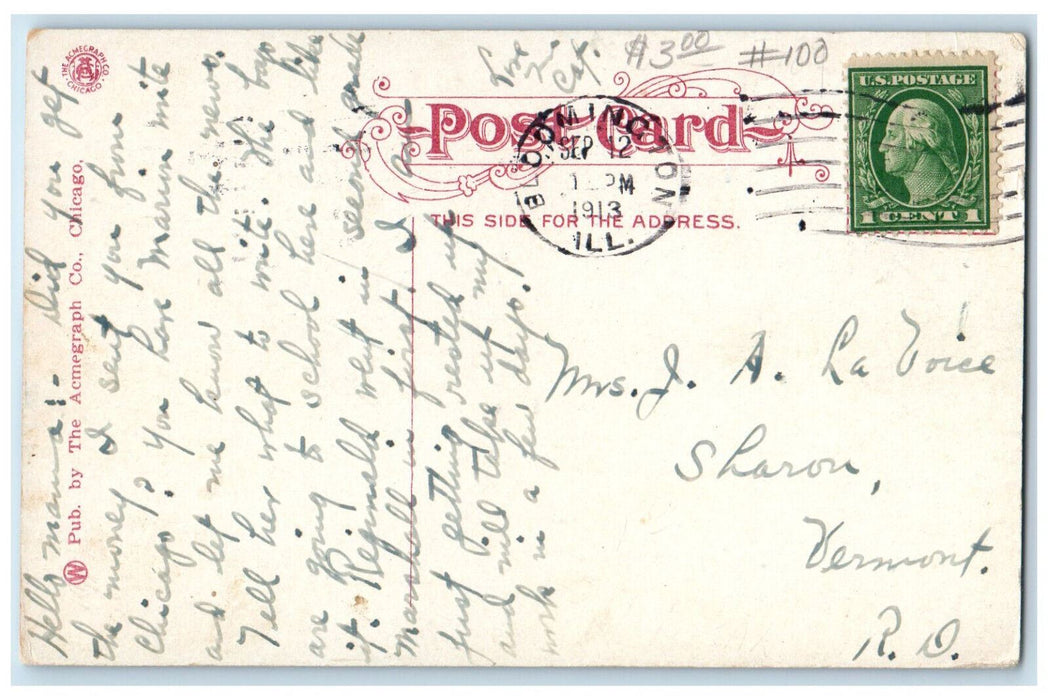 $3.00 #100
Post Card
THIS SIDE FOR THE ADDRESS.
BLOOMINGTON
SEP 12
PM
1913
ILL.
U.S. POSTAGE
1 CENT 1
THE ACMEGRAPH CO.
CHICAGO
W Pub. by The Acmegraph Co., Chicago.
Hello mama:- Did you get
the money I sent you from
Chicago? You have Marion write
and let me know all the news.
Tell her what to write. The boys
are going to school here and like
it. Reginald went in second grade
Marshall in first. I am
just getting rested up
and will take up my
work in a few days.
Mrs. J. A. La Voice
Sharon,
Vermont.
R. D.